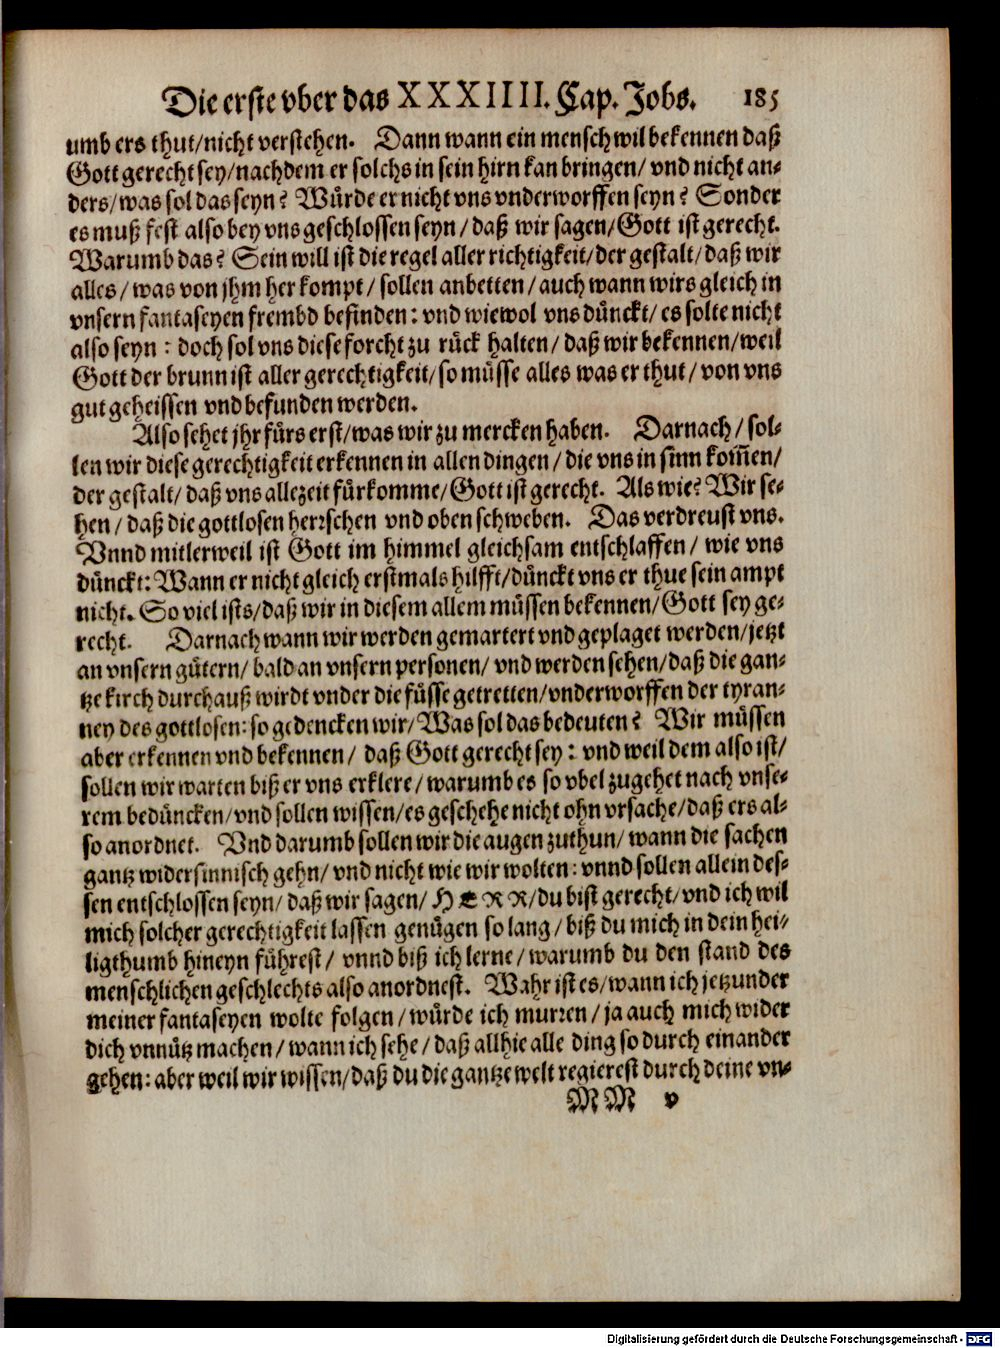 Die erste vber das XXXIIII. Cap. Jobs. 185
umb ers thut/nicht verstehen. Dann wann ein mensch wil bekennen daß
Gott gerecht sey/nachdem er solchs in sein hirn kan bringen/ vnd nicht an-
ders/was sol das seyn? Würde er nicht vns vnderworffen seyn? Sonder
es muß fest also bey vns geschlossen seyn/ daß wir sagen/Gott ist gerecht.
Warumb das? Sein will ist die regel aller richtigkeit/der gestalt/daß wir
alles/ was von jhm her kompt/ sollen anbetten/auch wann wirs gleich in
vnsern fantaseyen frembd befinden: vnd wiewol vns dünckt/ es solte nicht
also seyn: doch sol vns diese forcht zu rück halten/ daß wir bekennen/weil
Gott der brunn ist aller gerechtigkeit/so müsse alles was er thut/ von vns
gut geheissen vnd befunden werden.
Also sehet jhr fürs erst/was wir zu mercken haben. Darnach/ sol-
len wir diese gerechtigkeit erkennen in allen dingen/die vns in sinn kom̃en/
der gestalt/ daß vns allezeit fürkomme/Gott ist gerecht. Als wie? Wir se-
hen/ daß die gottlosen herrschen vnd oben schweben. Das verdreust vns.
Vnnd mitlerweil ist Gott im himmel gleichsam entschlaffen/ wie vns
dünckt: Wann er nicht gleich erstmals hilfft/dünckt vns er thue sein ampt
nicht. So viel ists/daß wir in diesem allem müssen bekennen/Gott sey ge-
recht. Darnach wann wir werden gemartert vnd geplaget werden/jetzt
an vnsern gütern/ bald an vnsern personen/ vnd werden sehen/daß die gan-
tze kirch durchauß wirdt vnder die füsse getretten/vnderworffen der tyran-
ney des gottlosen: so gedencken wir/Was sol das bedeuten? Wir müssen
aber erkennen vnd bekennen/ daß Gott gerecht sey: vnd weil dem also ist/
sollen wir warten biß er vns erklere/warumb es so vbel zugehet nach vnse-
rem bedüncken/vnd sollen wissen/es geschehe nicht ohn vrsache/daß ers al-
so anordnet. Vnd darumb sollen wir die augen zuthun/ wann die sachen
gantz widersinnisch gehn/ vnd nicht wie wir wolten: vnnd sollen allein des-
sen entschlossen seyn/ daß wir sagen/ HERR/du bist gerecht/vnd ich wil
mich solcher gerechtigkeit lassen genügen so lang/ biß du mich in dein hei-
ligthumb hineyn führest/ vnnd biß ich lerne/warumb du den stand des
menschlichen geschlechts also anordnest. Wahr ist es/wann ich jetzunder
meiner fantaseyen wolte folgen/würde ich murren/ja auch mich wider
dich vnnütz machen/wann ich sehe/ daß allhie alle ding so durch einander
gehen: aber weil wir wissen/daß du die gantze welt regierest durch deine vn-
MM v
Digitalisierung gefördert durch die Deutsche Forschungsgemeinschaft - DFG